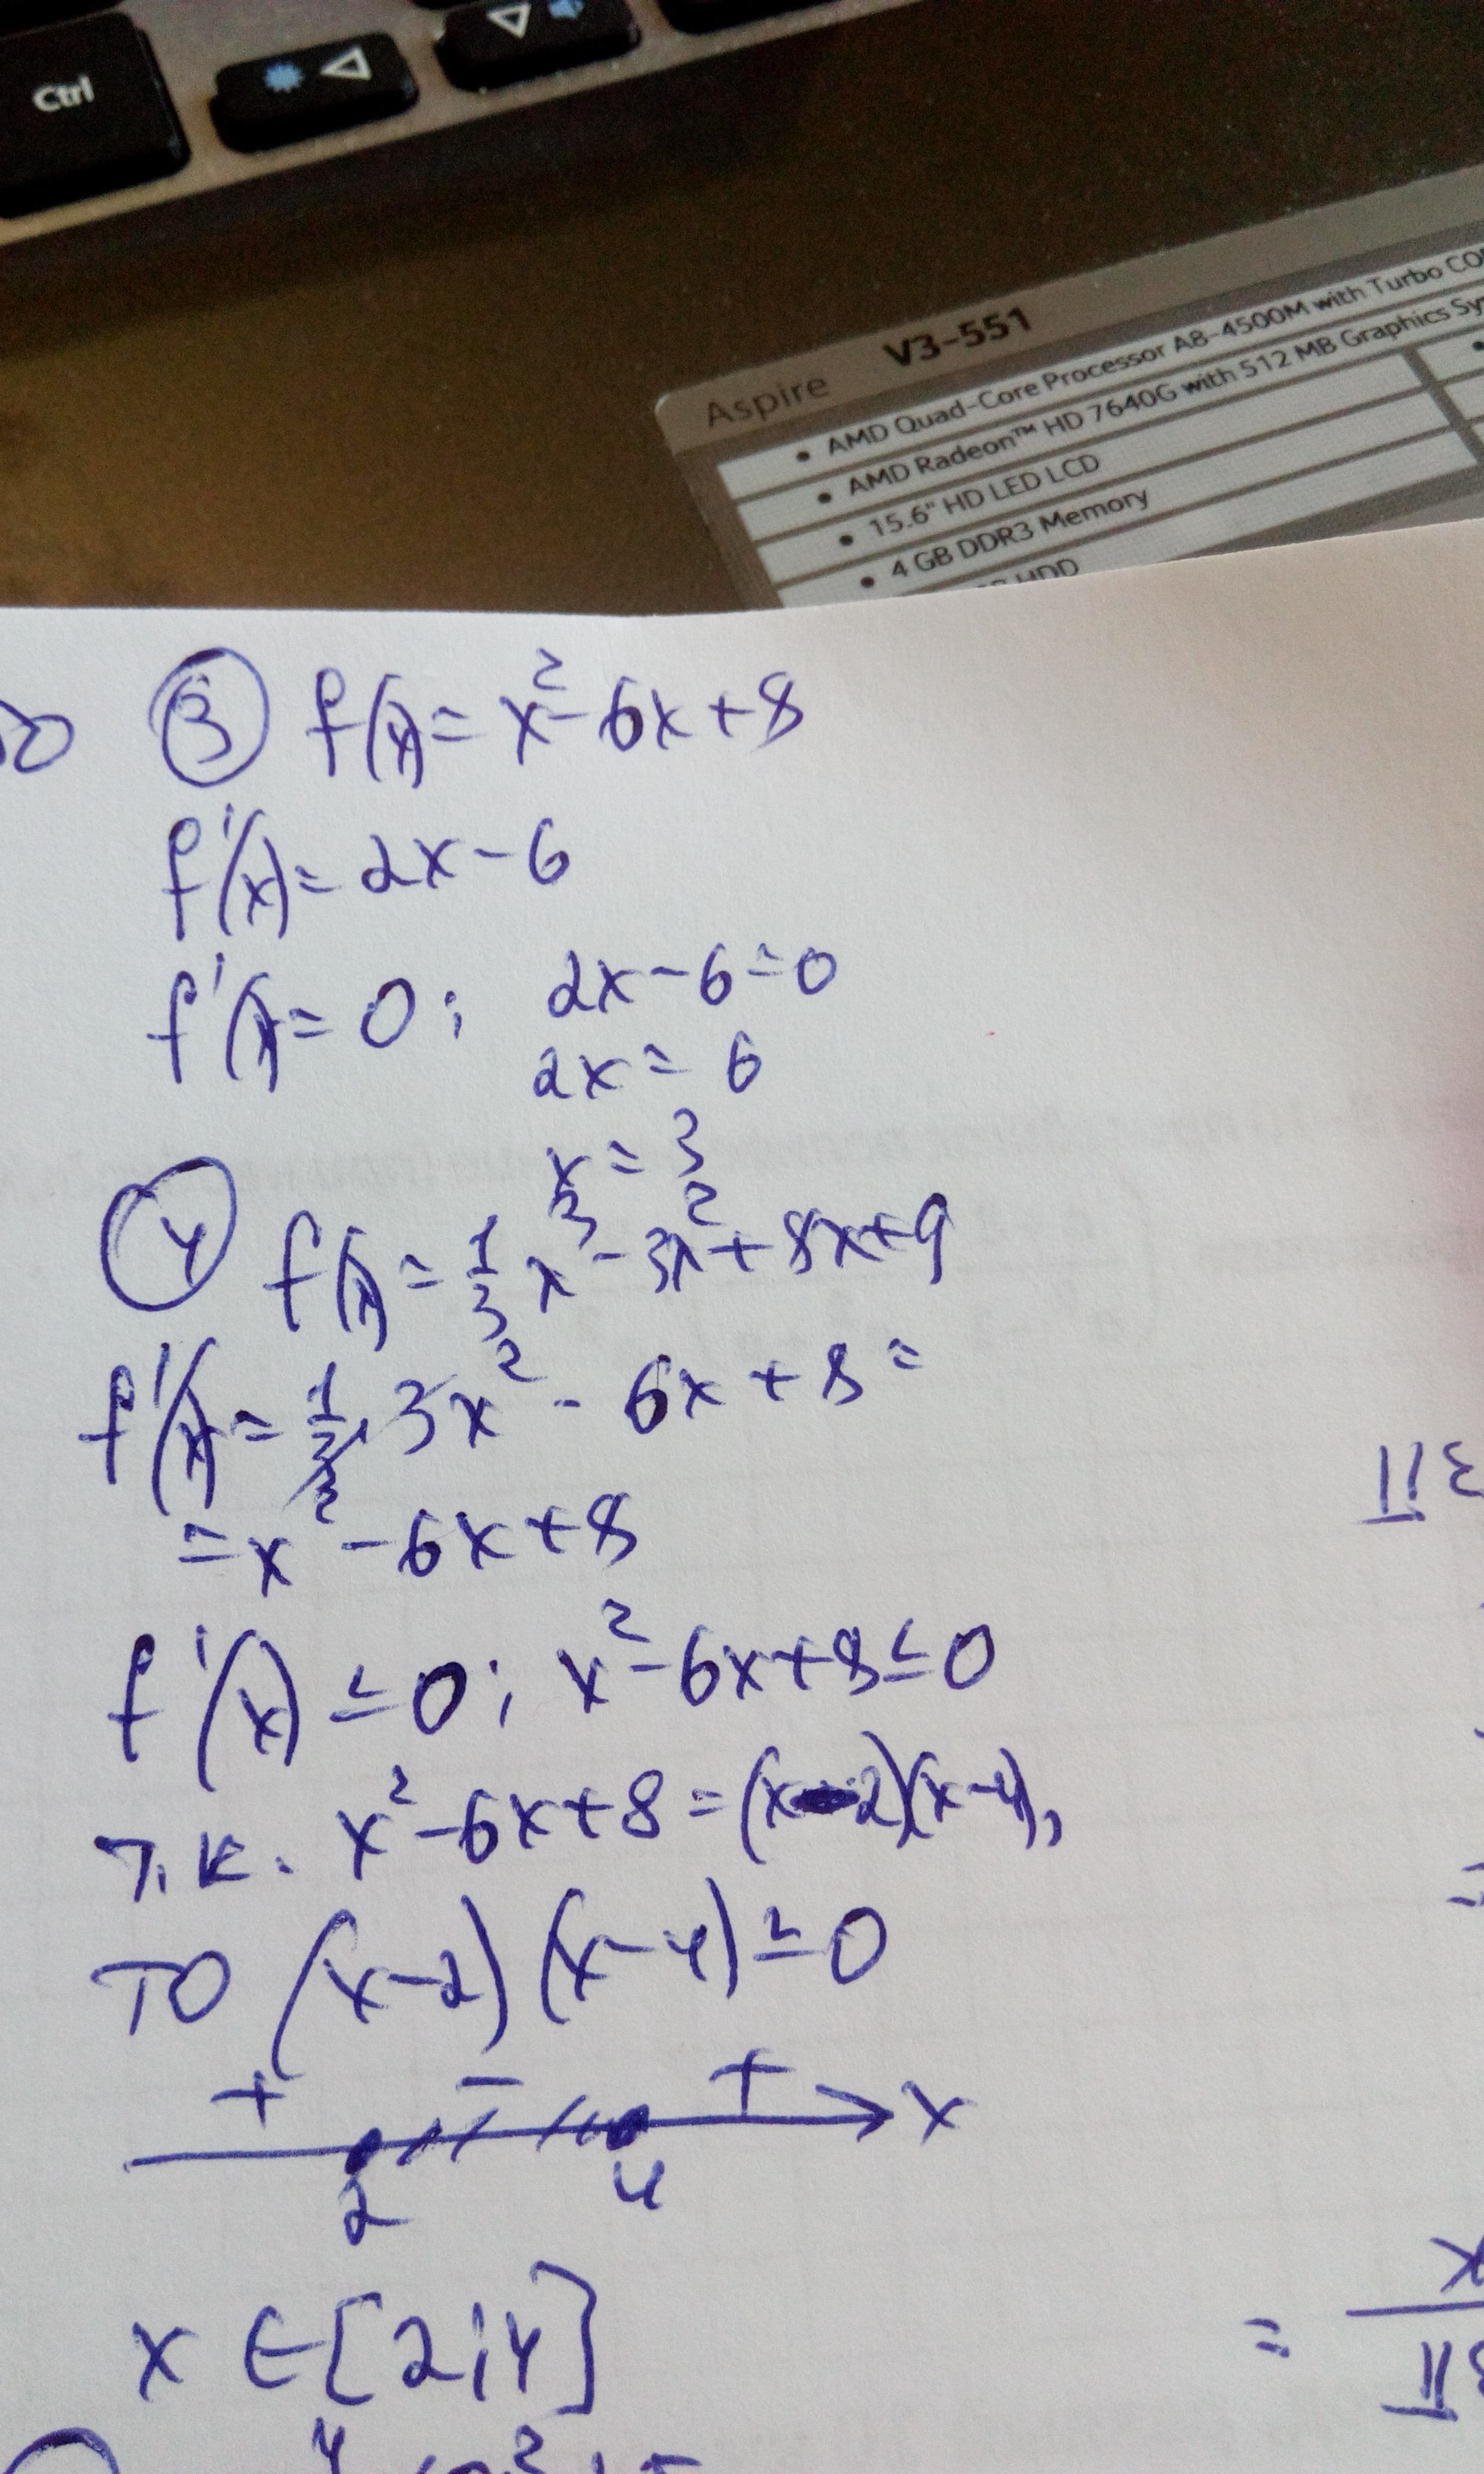 Ctrl
Aspire V3-551
• AMD Quad-Core Processor A8-4500M with Turbo CO
• AMD Radeon™ HD 7640G with 512 MB Graphics Sy
• 15.6" HD LED LCD
• 4 GB DDR3 Memory
HDD
③ f(x)= x²-6x+8
f'(x)= 2x-6
f'(x)= 0; 2x-6=0
2x= 6
x=3
④ f(x)= 1/3 x³-3x²+8x+9
f'(x)= 1/3 · 3x² - 6x+8=
=x²-6x+8
f'(x)≤0; x²-6x+8≤0
т.к. x²-6x+8=(x-2)(x-4),
то (x-2)(x-4)≤0
+ - + x
2 4
x ∈ [2;4]